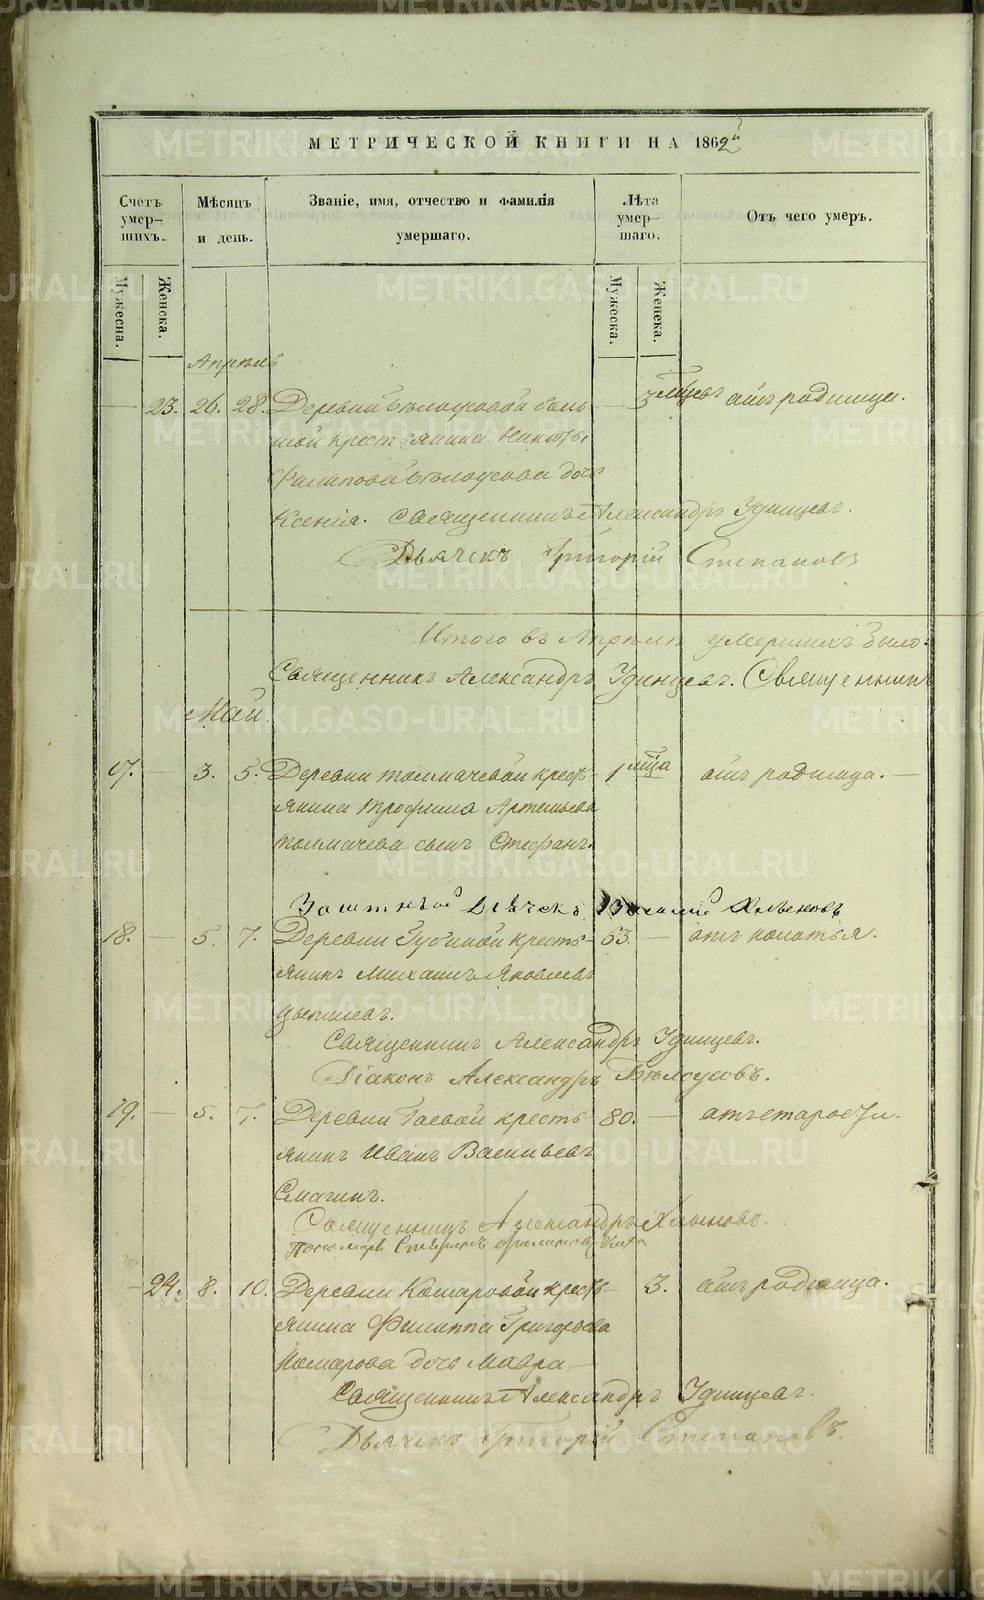 МЕТРИЧЕСКОЙ КНИГИ НА 1862й
Счетъ умер-шихъ.
Мѣсяцъ и день.
Званіе, имя, отчество и фамилія умершаго.
Лѣта умер-шаго.
Отъ чего умеръ.
Мужеска.
Женска.
Мужеска.
Женска.
Апрѣль
23. 26. 28. Деревни Бѣлоусовой боль- 3 мѣсяц отъ родимца.
шой крестьянина Никиты
Филипова Бѣлоусова дочь
Ксенія. Священникъ Александръ Удинцевъ.
Дьячекъ Григорій Степановъ
Итого въ Апрѣлѣ умершихъ было
Священникъ Александръ Удинцевъ. Священникъ
Май.
17. — 3. 5. Деревни Толмачевой крест- 1 мца отъ родимца. —
янина Трофима Артемьева
Толмачева сынъ Стефанъ.
Заштатный Дьячекъ Василій Хлыновъ
18. — 5. 7. Деревни Губиной кресть- 53. — отъ колотья.
янинъ Михаилъ Яковлевъ
Цыпилевъ.
Священникъ Александръ Удинцевъ.
Діаконъ Александръ Бѣлоусовъ.
19. — 5. 7. Деревни Гаевой кресть- 80. — отъ старости.
янинъ Иванъ Васильевъ
Смагинъ.
Священникъ Александръ Хлыновъ.
Пономарь
— 24. 8. 10. Деревни Комаровой крест- 3. отъ родимца.
янина Филиппа Григорьева
Комарова дочь Мавра —
Священникъ Александръ Удинцевъ.
Дьячекъ Григорій Степановъ.